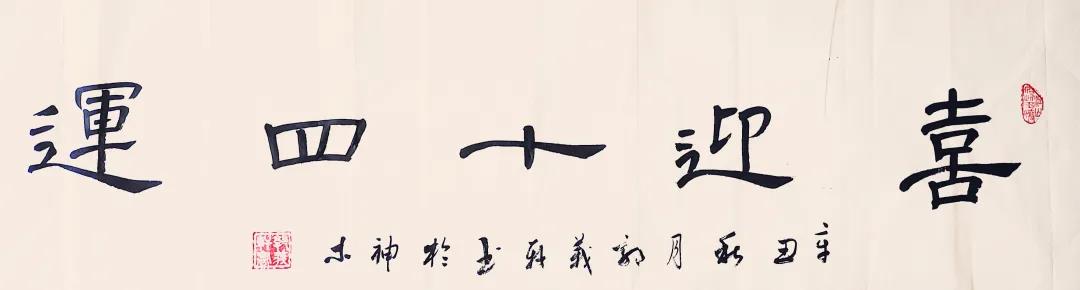 喜迎十四運
辛丑秋月郭義群书於神木